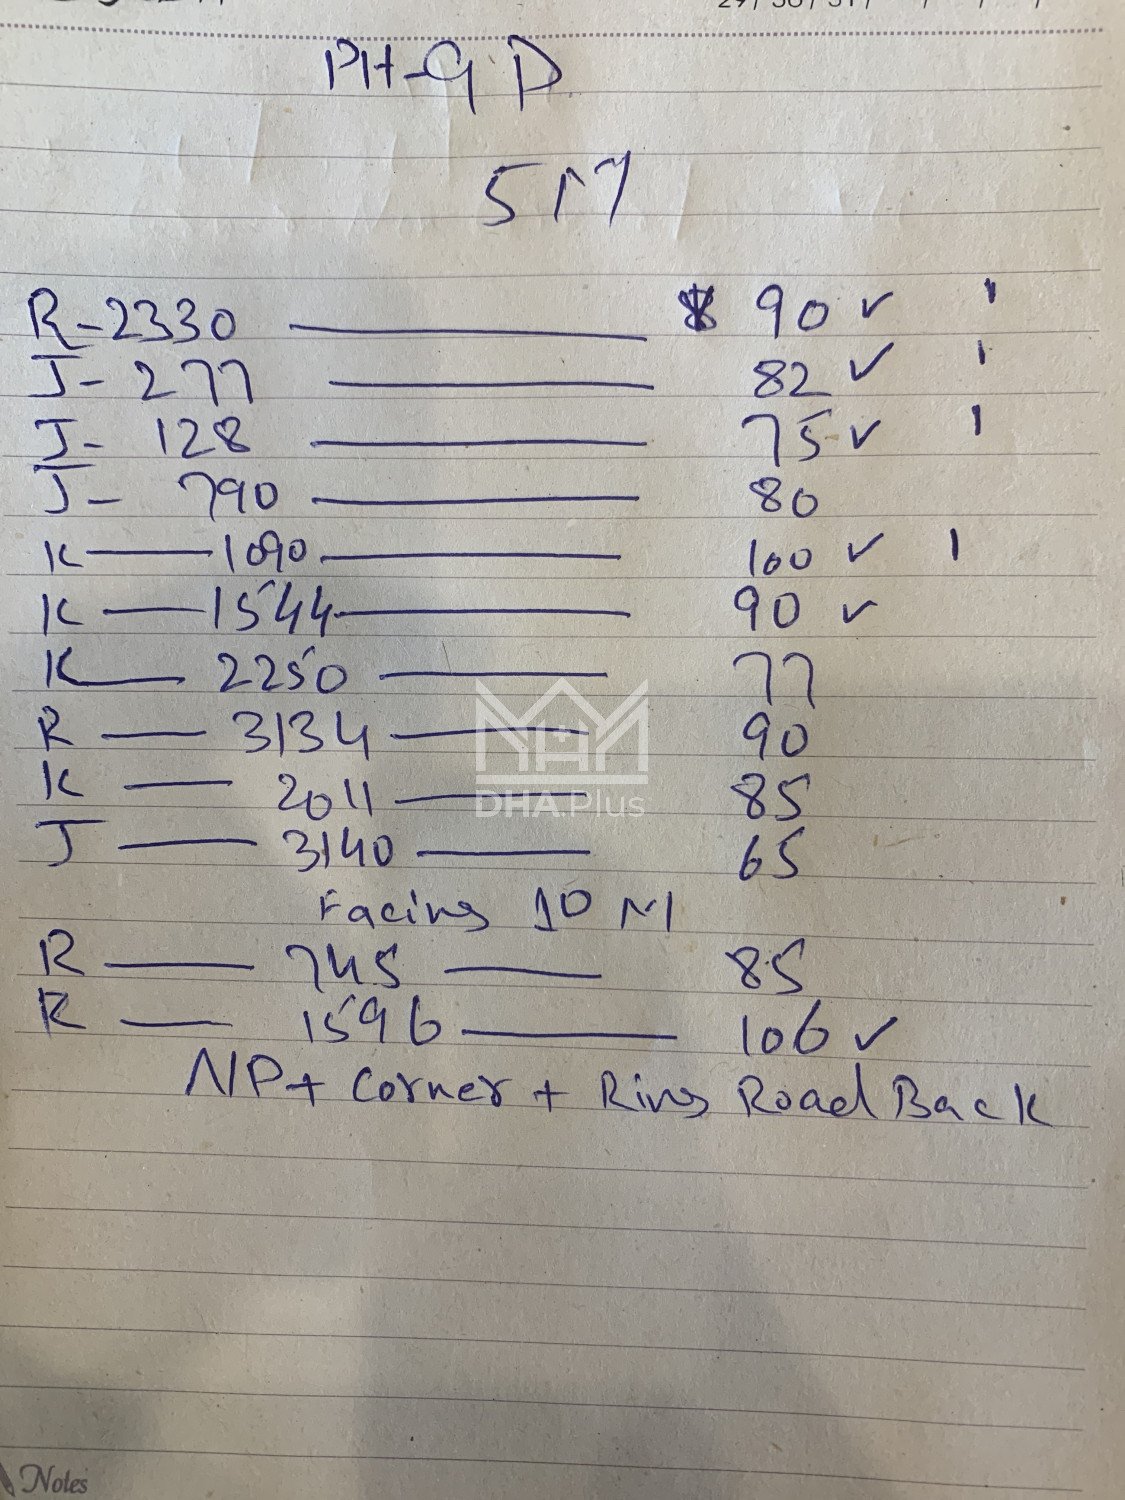 PH-9 D
5M
R-2330 90 ✓ ı
J- 277 82 ✓ ı
J- 128 75 ✓ ı
J- 790 80
K 1090 100 ✓ ı
K 1544 90 ✓
K 2250 77
R 3134 90
K 2011 85
J 3140 65
Facing 10 M
R 745 85
R 1596 106 ✓
NP + Corner + Ring Road Back
DHA.Plus
Notes